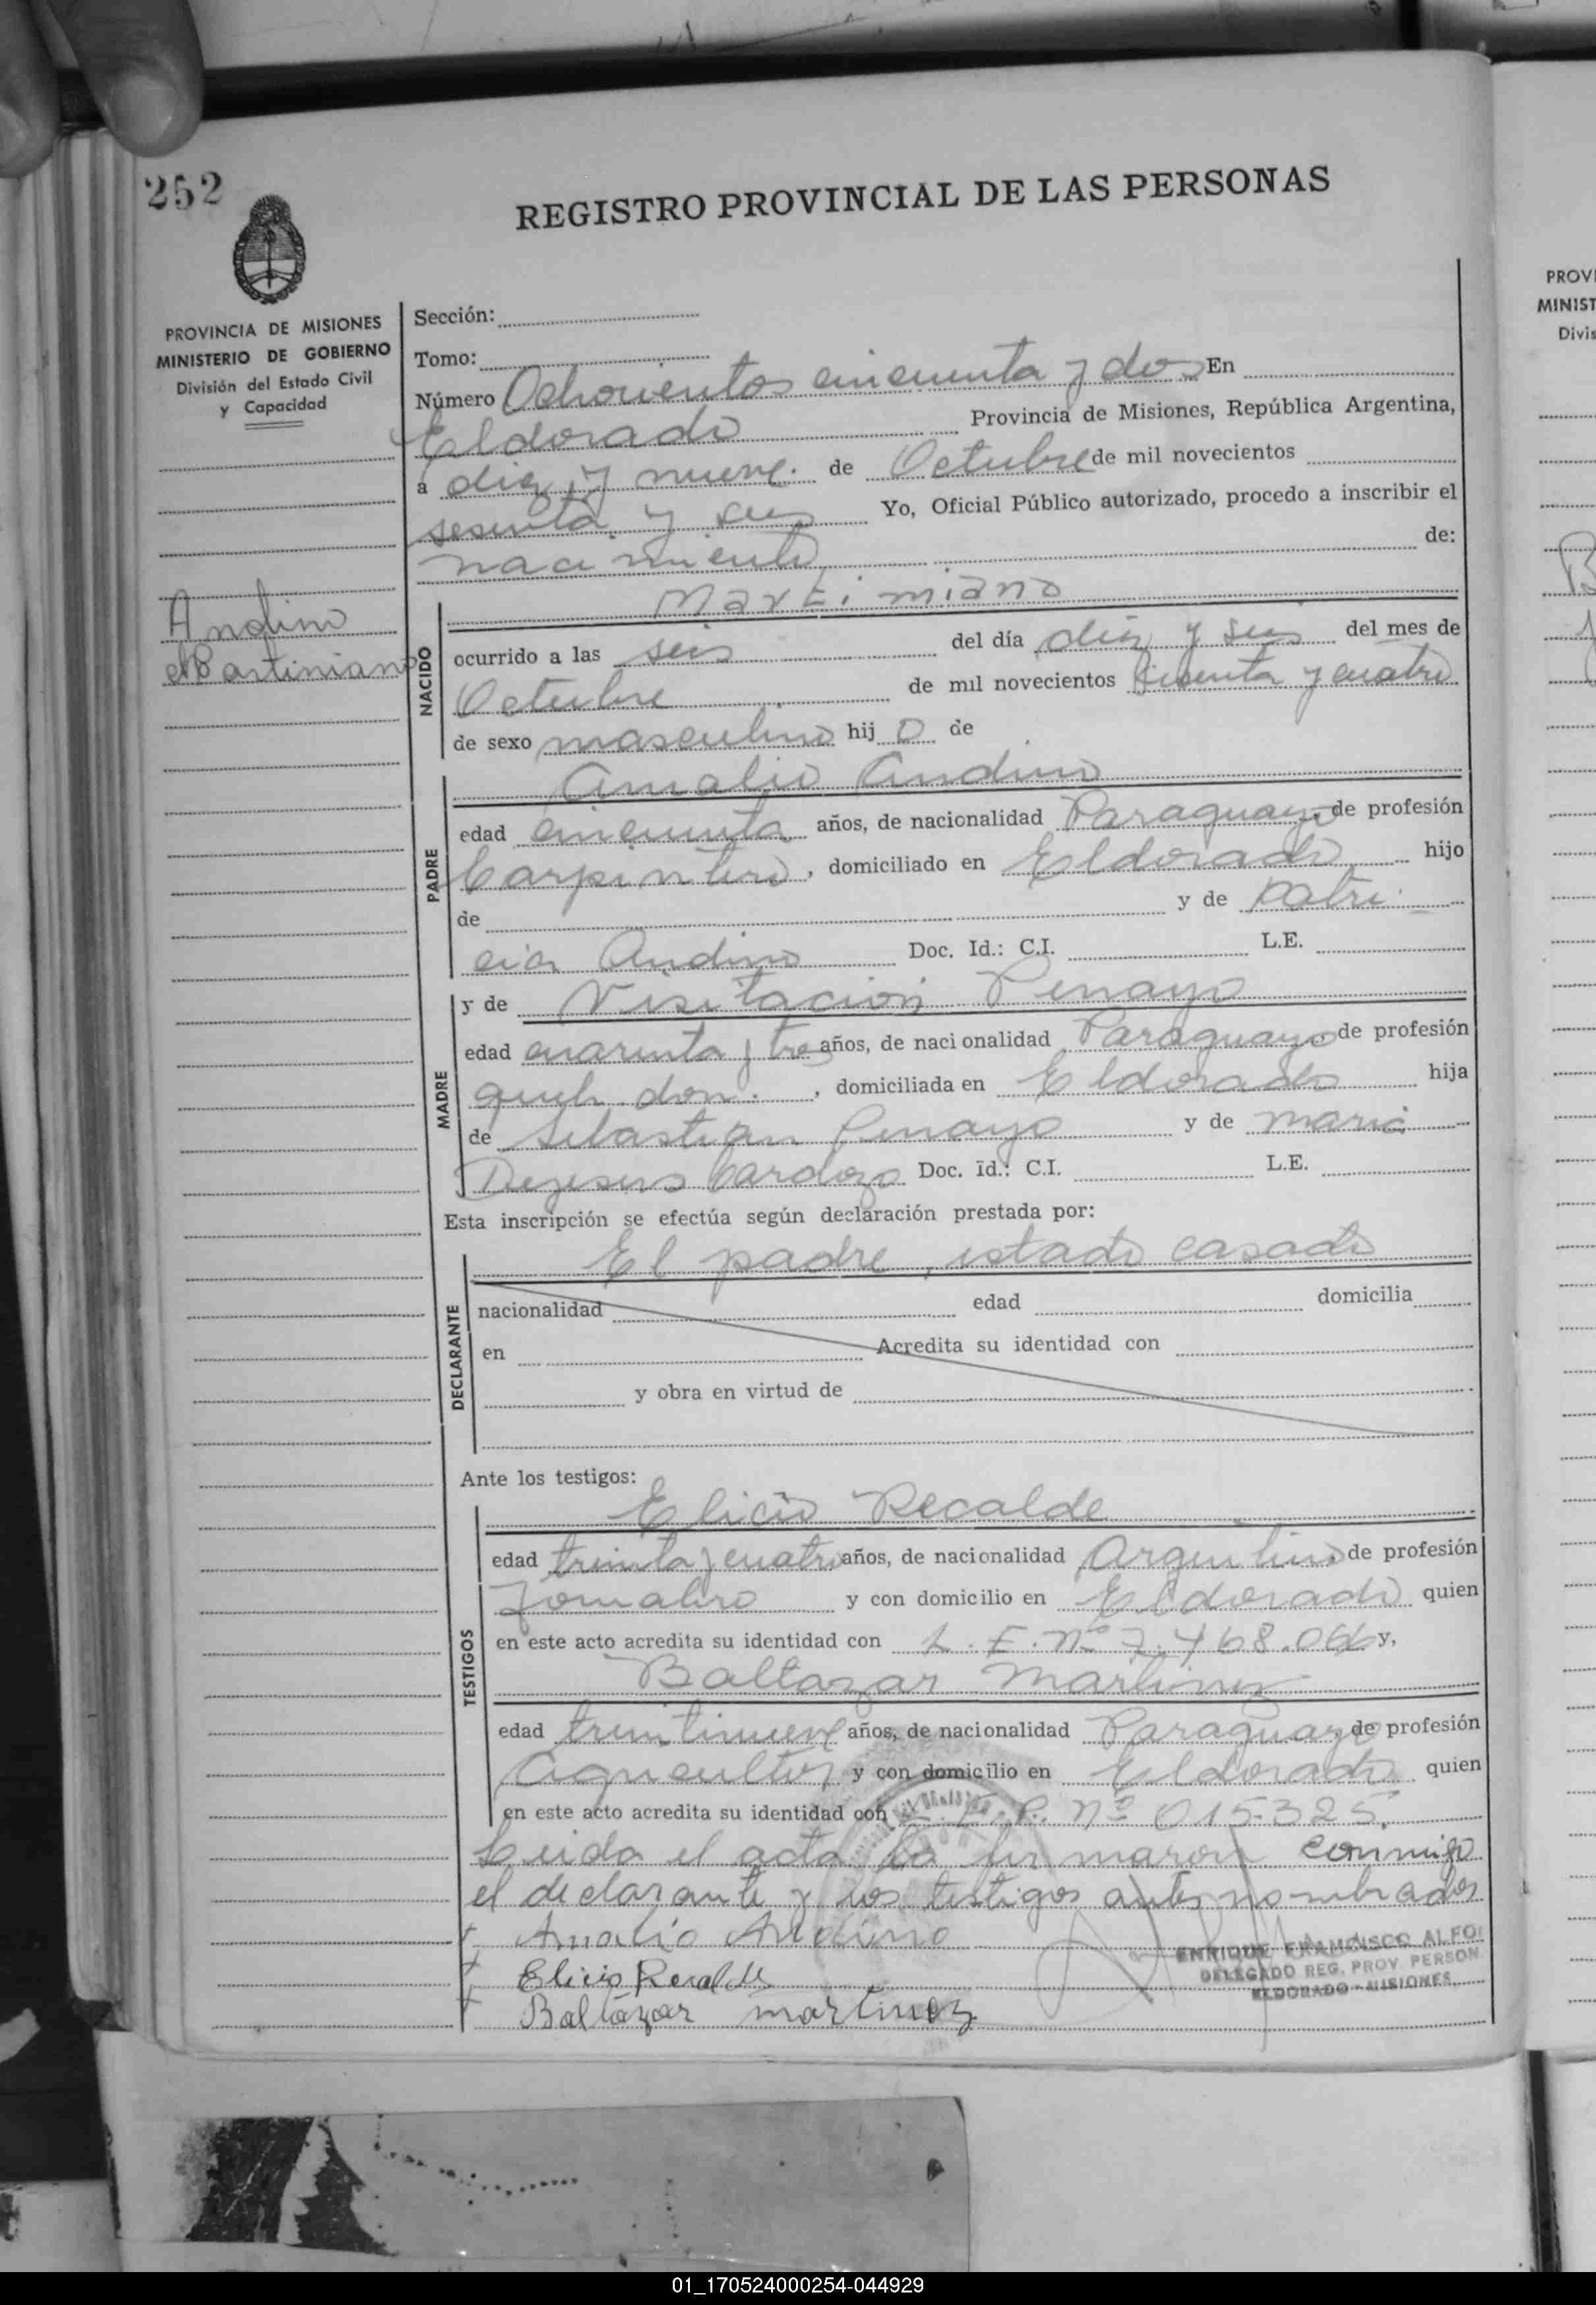 252
REGISTRO PROVINCIAL DE LAS PERSONAS
PROVINCIA DE MISIONES
MINISTERIO DE GOBIERNO
División del Estado Civil
y Capacidad
Andino
Martiniano
Sección:
Tomo:
Número Ochocientos cincuenta y dos En
Eldorado Provincia de Misiones, República Argentina,
a diez y nueve de Octubre de mil novecientos
sesenta y seis Yo, Oficial Público autorizado, procedo a inscribir el
nacimiento de:
NACIDO
Martimiano
ocurrido a las seis del día diez y seis del mes de
Octubre de mil novecientos sesenta y cuatro
de sexo masculino hij o de
PADRE
Amalio Andino
edad cincuenta años, de nacionalidad Paraguayo de profesión
Carpintero, domiciliado en Eldorado hijo
de y de Patri
cia Andino Doc. Id.: C.I. L.E.
MADRE
y de Visitación Penayo
edad cuarenta y tres años, de nacionalidad Paraguaya de profesión
queh. dom., domiciliada en Eldorado hija
de Sebastian Penayo y de Maria
Dejesus Cardozo Doc. id.: C.I. L.E.
Esta inscripción se efectúa según declaración prestada por:
DECLARANTE
El padre, estado casado
nacionalidad edad domicilia
en Acredita su identidad con
y obra en virtud de
Ante los testigos:
TESTIGOS
Elicio Recalde
edad treinta y cuatro años, de nacionalidad Argentino de profesión
Jornalero y con domicilio en Eldorado quien
en este acto acredita su identidad con L.E. Nº 7.468.066 y,
Baltazar Martinez
edad treintinueve años, de nacionalidad Paraguayo de profesión
Agricultor y con domicilio en Eldorado quien
en este acto acredita su identidad con C.I.P. Nº 015325.
Leida el acta la firmaron conmigo
el declarante y los testigos antes nombrados
Amalio Andino
Elicio Recalde
Baltázar martinez
ENRIQUE FRANCISCO ALFO
DELEGADO REG. PROV. PERSON
ELDORADO - MISIONES
PROVI
MINIST
Divis
01_170524000254-044929